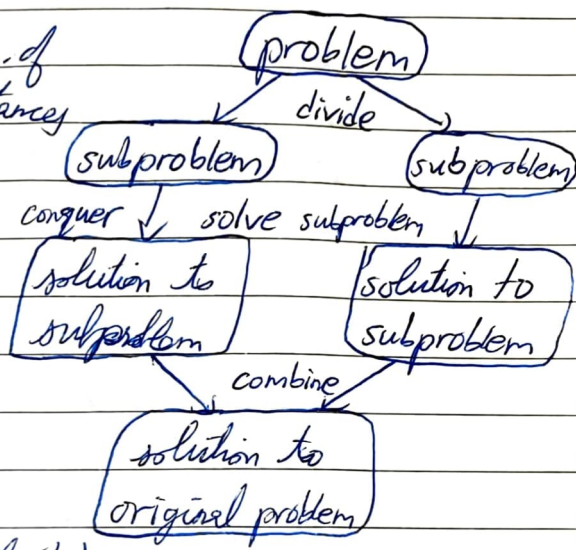 . of
problem
ances
divide
subproblem
subproblem
conquer
solve subproblem
solution to
subproblem
solution to
subproblem
combine
solution to
original problem